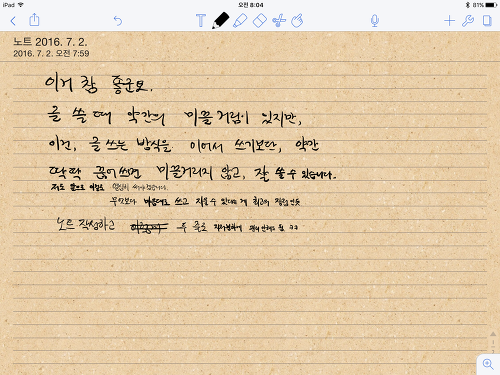 iPad
오전 8:04
81%
노트 2016. 7. 2.
2016. 7. 2. 오전 7:59
이거 참 좋군요.
글 쓸 때 약간의 미끌거림이 있지만,
이건, 글 쓰는 방식을 이어서 쓰기보단, 약간
딱딱 끊어쓰면 미끌거리지 않고, 잘 쓸 수 있습니다.
저도 앞으로 이걸로
무엇보다 마음대로 쓰고 지울 수 있다는 게 최고의 장점인듯
노트 작성하고 두 줄로 ㅋㅋ